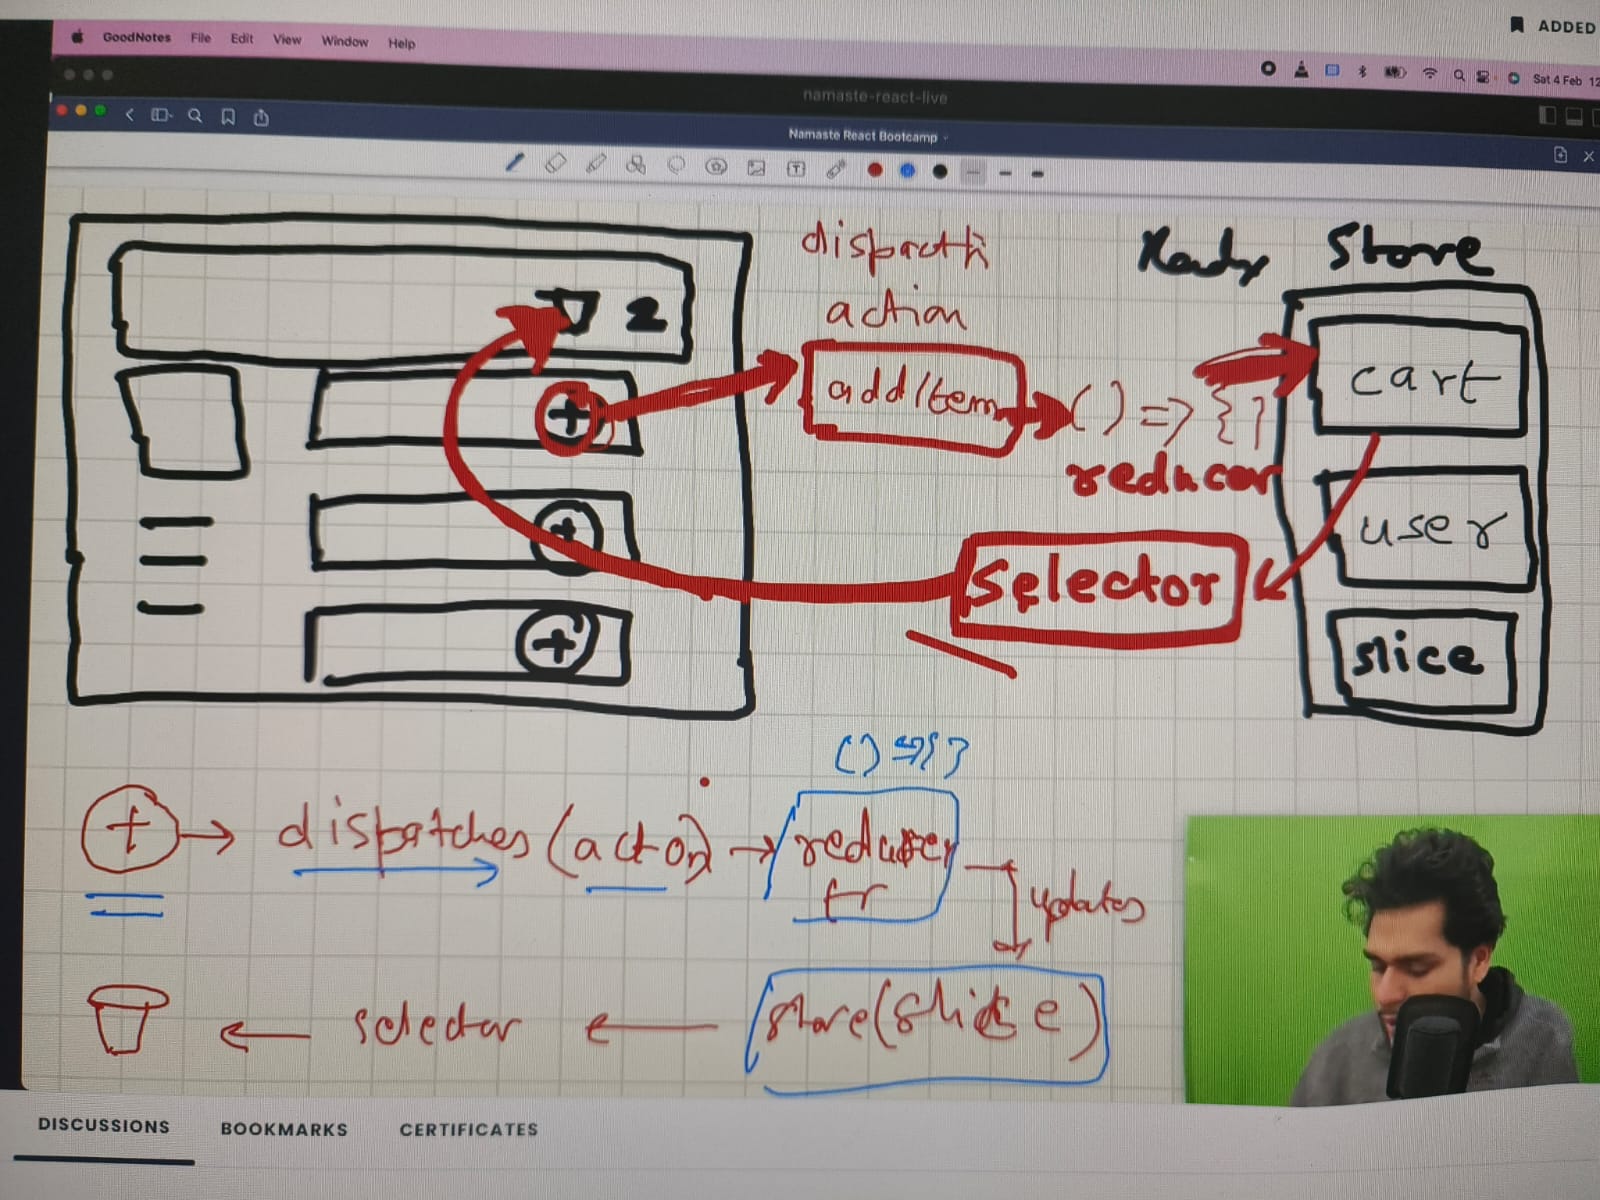 ADDED
GoodNotes File Edit View Window Help
Sat 4 Feb 12
namaste-react-live
Namaste React Bootcamp
T
dispacth
action
Redux Store
2
addItem
() => {}
reducer
cart
user
slice
selector
+
+
+
() => {}
+ → dispatches (action) → reducer
fr
updates
← selector ← store (slice)
DISCUSSIONS BOOKMARKS CERTIFICATES